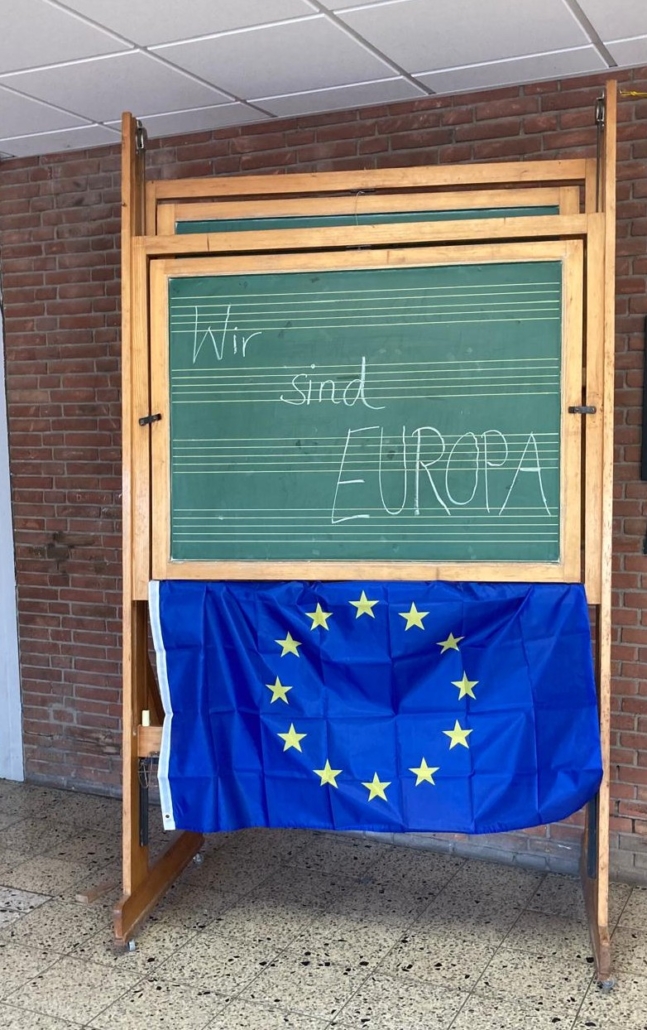 Wir
sind
EUROPA